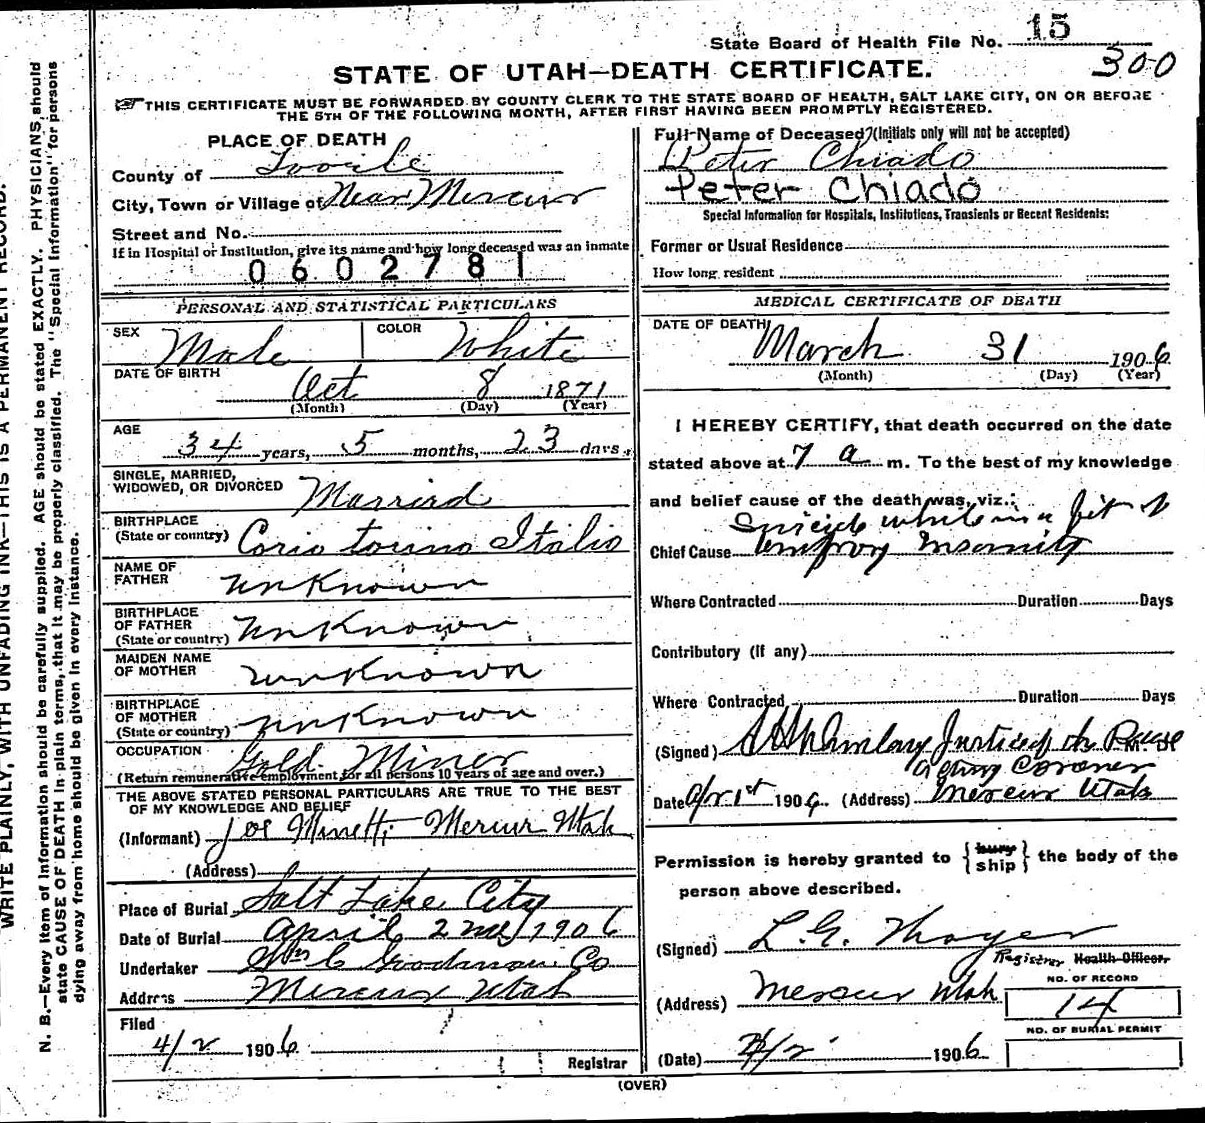 State Board of Health File No. 15
300
STATE OF UTAH—DEATH CERTIFICATE.
☞THIS CERTIFICATE MUST BE FORWARDED BY COUNTY CLERK TO THE STATE BOARD OF HEALTH, SALT LAKE CITY, ON OR BEFORE
THE 5TH OF THE FOLLOWING MONTH, AFTER FIRST HAVING BEEN PROMPTLY REGISTERED.
PLACE OF DEATH
County of Tooele
City, Town or Village of Near Mercur
Street and No.
If in Hospital or Institution, give its name and how long deceased was an inmate
0602781
PERSONAL AND STATISTICAL PARTICULARS
SEX Male COLOR White
DATE OF BIRTH
Oct 8 1871
(Month) (Day) (Year)
AGE
34 years, 5 months, 23 days.
SINGLE, MARRIED,
WIDOWED, OR DIVORCED Married
BIRTHPLACE
(State or country) Corio torino Italio
NAME OF
FATHER unKnown
BIRTHPLACE
OF FATHER
(State or country) unKnown
MAIDEN NAME
OF MOTHER unKnown
BIRTHPLACE
OF MOTHER
(State or country) unKnown
OCCUPATION Gold Miner
(Return remunerative employment for all persons 10 years of age and over.)
THE ABOVE STATED PERSONAL PARTICULARS ARE TRUE TO THE BEST
OF MY KNOWLEDGE AND BELIEF
(Informant) Joe Minetti Mercur Utah
(Address)
Place of Burial Salt Lake City
Date of Burial April 2nd 1906
Undertaker Wm C Goodnow Co
Address Mercur Utah
Filed
4/2 1906
Registrar
Full Name of Deceased? (Initials only will not be accepted)
Peter Chiado
Peter Chiado
Special Information for Hospitals, Institutions, Transients or Recent Residents:
Former or Usual Residence
How long resident
MEDICAL CERTIFICATE OF DEATH
DATE OF DEATH
March 31 1906
(Month) (Day) (Year)
I HEREBY CERTIFY, that death occurred on the date
stated above at 7 a m. To the best of my knowledge
and belief cause of the death was, viz.:
Suicide while in a fit of
Chief Cause Insanity
Where Contracted Duration Days
Contributory (If any)
Where Contracted Duration Days
(Signed) Justice of the Peace
acting Coroner
Date Apr 1st 1906 (Address) Mercur Utah
Permission is hereby granted to {bury ship} the body of the
person above described.
(Signed) L. G. Thayer
Registrar Health Officer.
(Address) Mercur Utah
NO. OF RECORD
14
NO. OF BURIAL PERMIT
(Date) 4/2 1906
(OVER)
WRITE PLAINLY, WITH UNFADING INK—THIS IS A PERMANENT RECORD.
N. B.—Every item of information should be carefully supplied. AGE should be stated EXACTLY. PHYSICIANS should
state CAUSE OF DEATH in plain terms, that it may be properly classified. The "Special Information" for persons
dying away from home should be given in every instance.